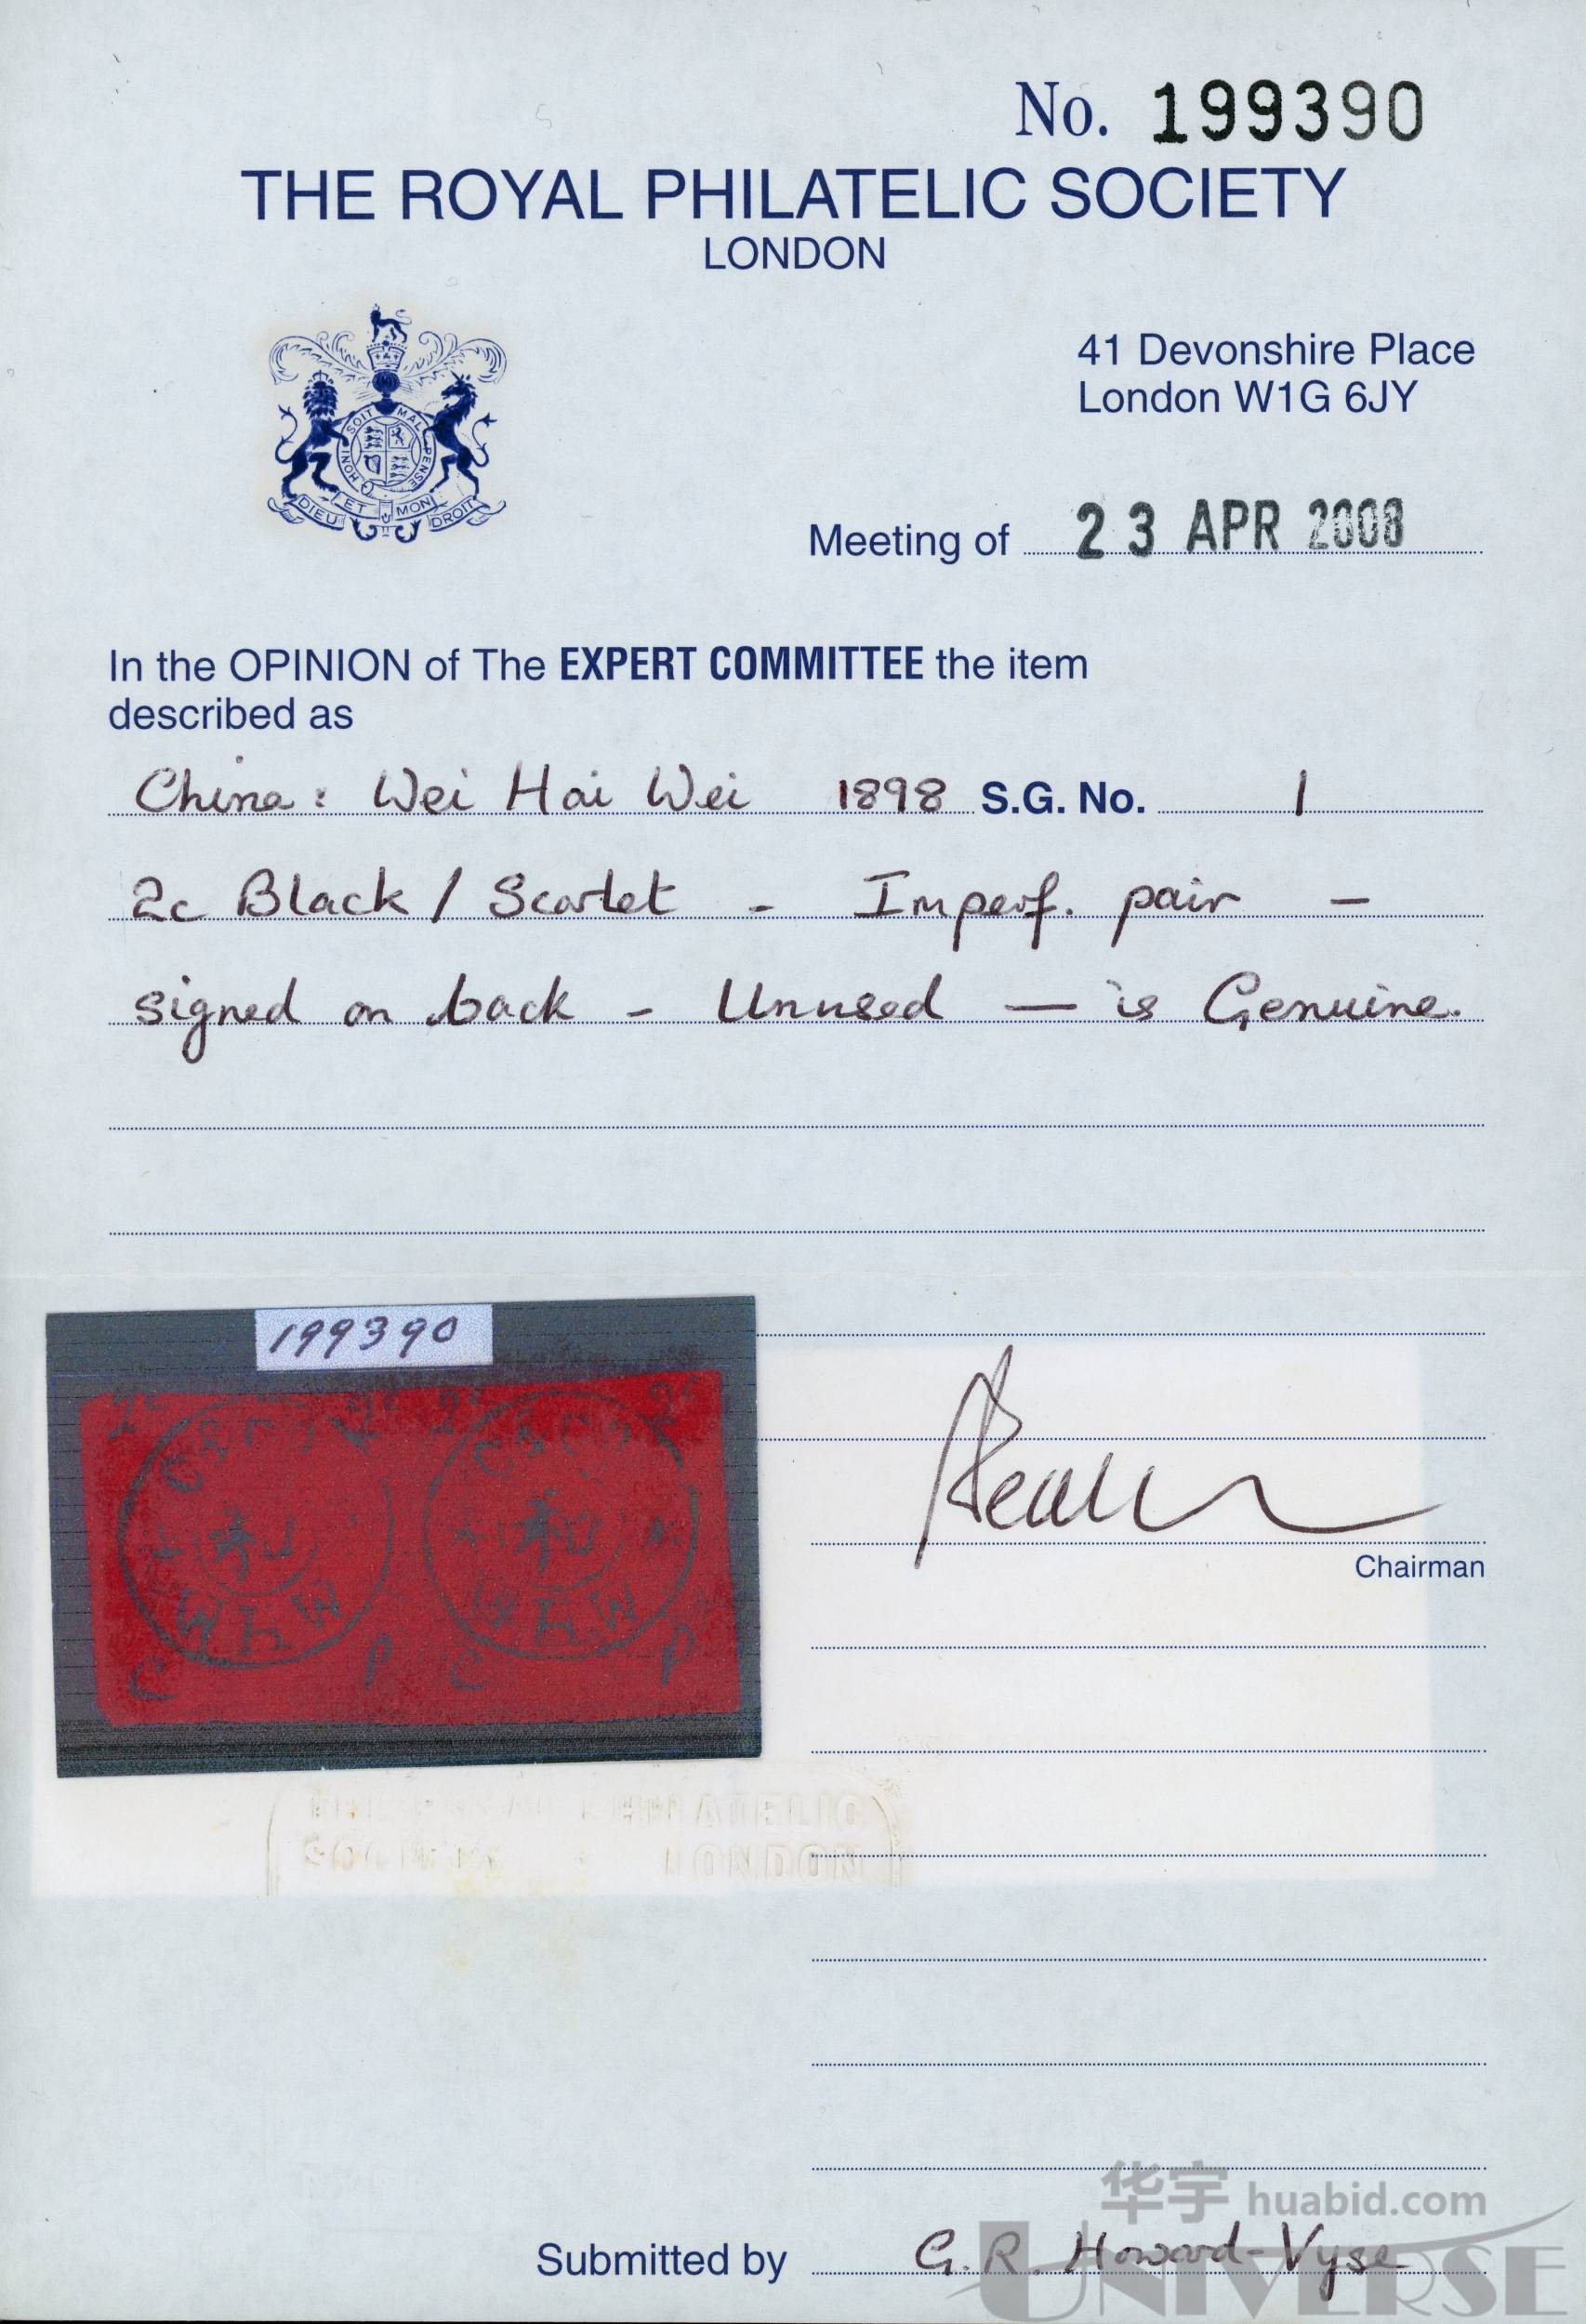 No. 199390
THE ROYAL PHILATELIC SOCIETY
LONDON
HONI SOIT MAL PENSE
DIEU ET MON DROIT
41 Devonshire Place
London W1G 6JY
Meeting of 23 APR 2008
In the OPINION of The EXPERT COMMITTEE the item
described as
China: Wei Hai Wei 1898 S.G. No. 1
2c Black / Scarlet - Imperf. pair -
signed on back - Unused — is Genuine.
199390
2c 2c 2c 2c
C P C P
Chairman
PHILATELIC
LONDON
华宇 huabid.com
Submitted by G.R. Howard-Vyse
UNIVERSE